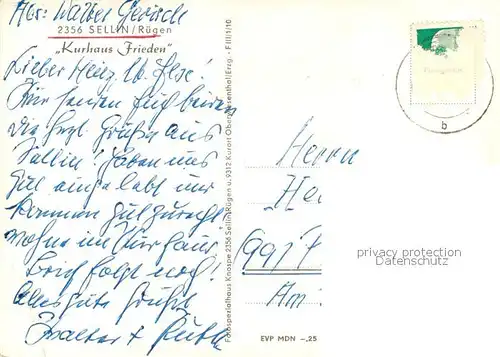 Abs: Walter Gerisch
2356 SELLIN/Rügen
„Kurhaus Frieden"
Lieber Heinz, lb. Ilse!
Wir senden Euch beiden
die herzl. Grüße aus
Sellin! Haben uns
gut eingelebt u.
kommen gut zurecht
wohne im Kurhaus
Brief folgt noch!
Alles gute Grüße
Walter + Ruth
Fotospezialhaus Knospe 2356 Sellin/Rügen u. 9312 Kurort Oberwiesenthal/Erzg. - F (II/1) 10
EVP MDN -,25
b
Herrn
Hei
9917
Am
privacy protection
Datenschutz